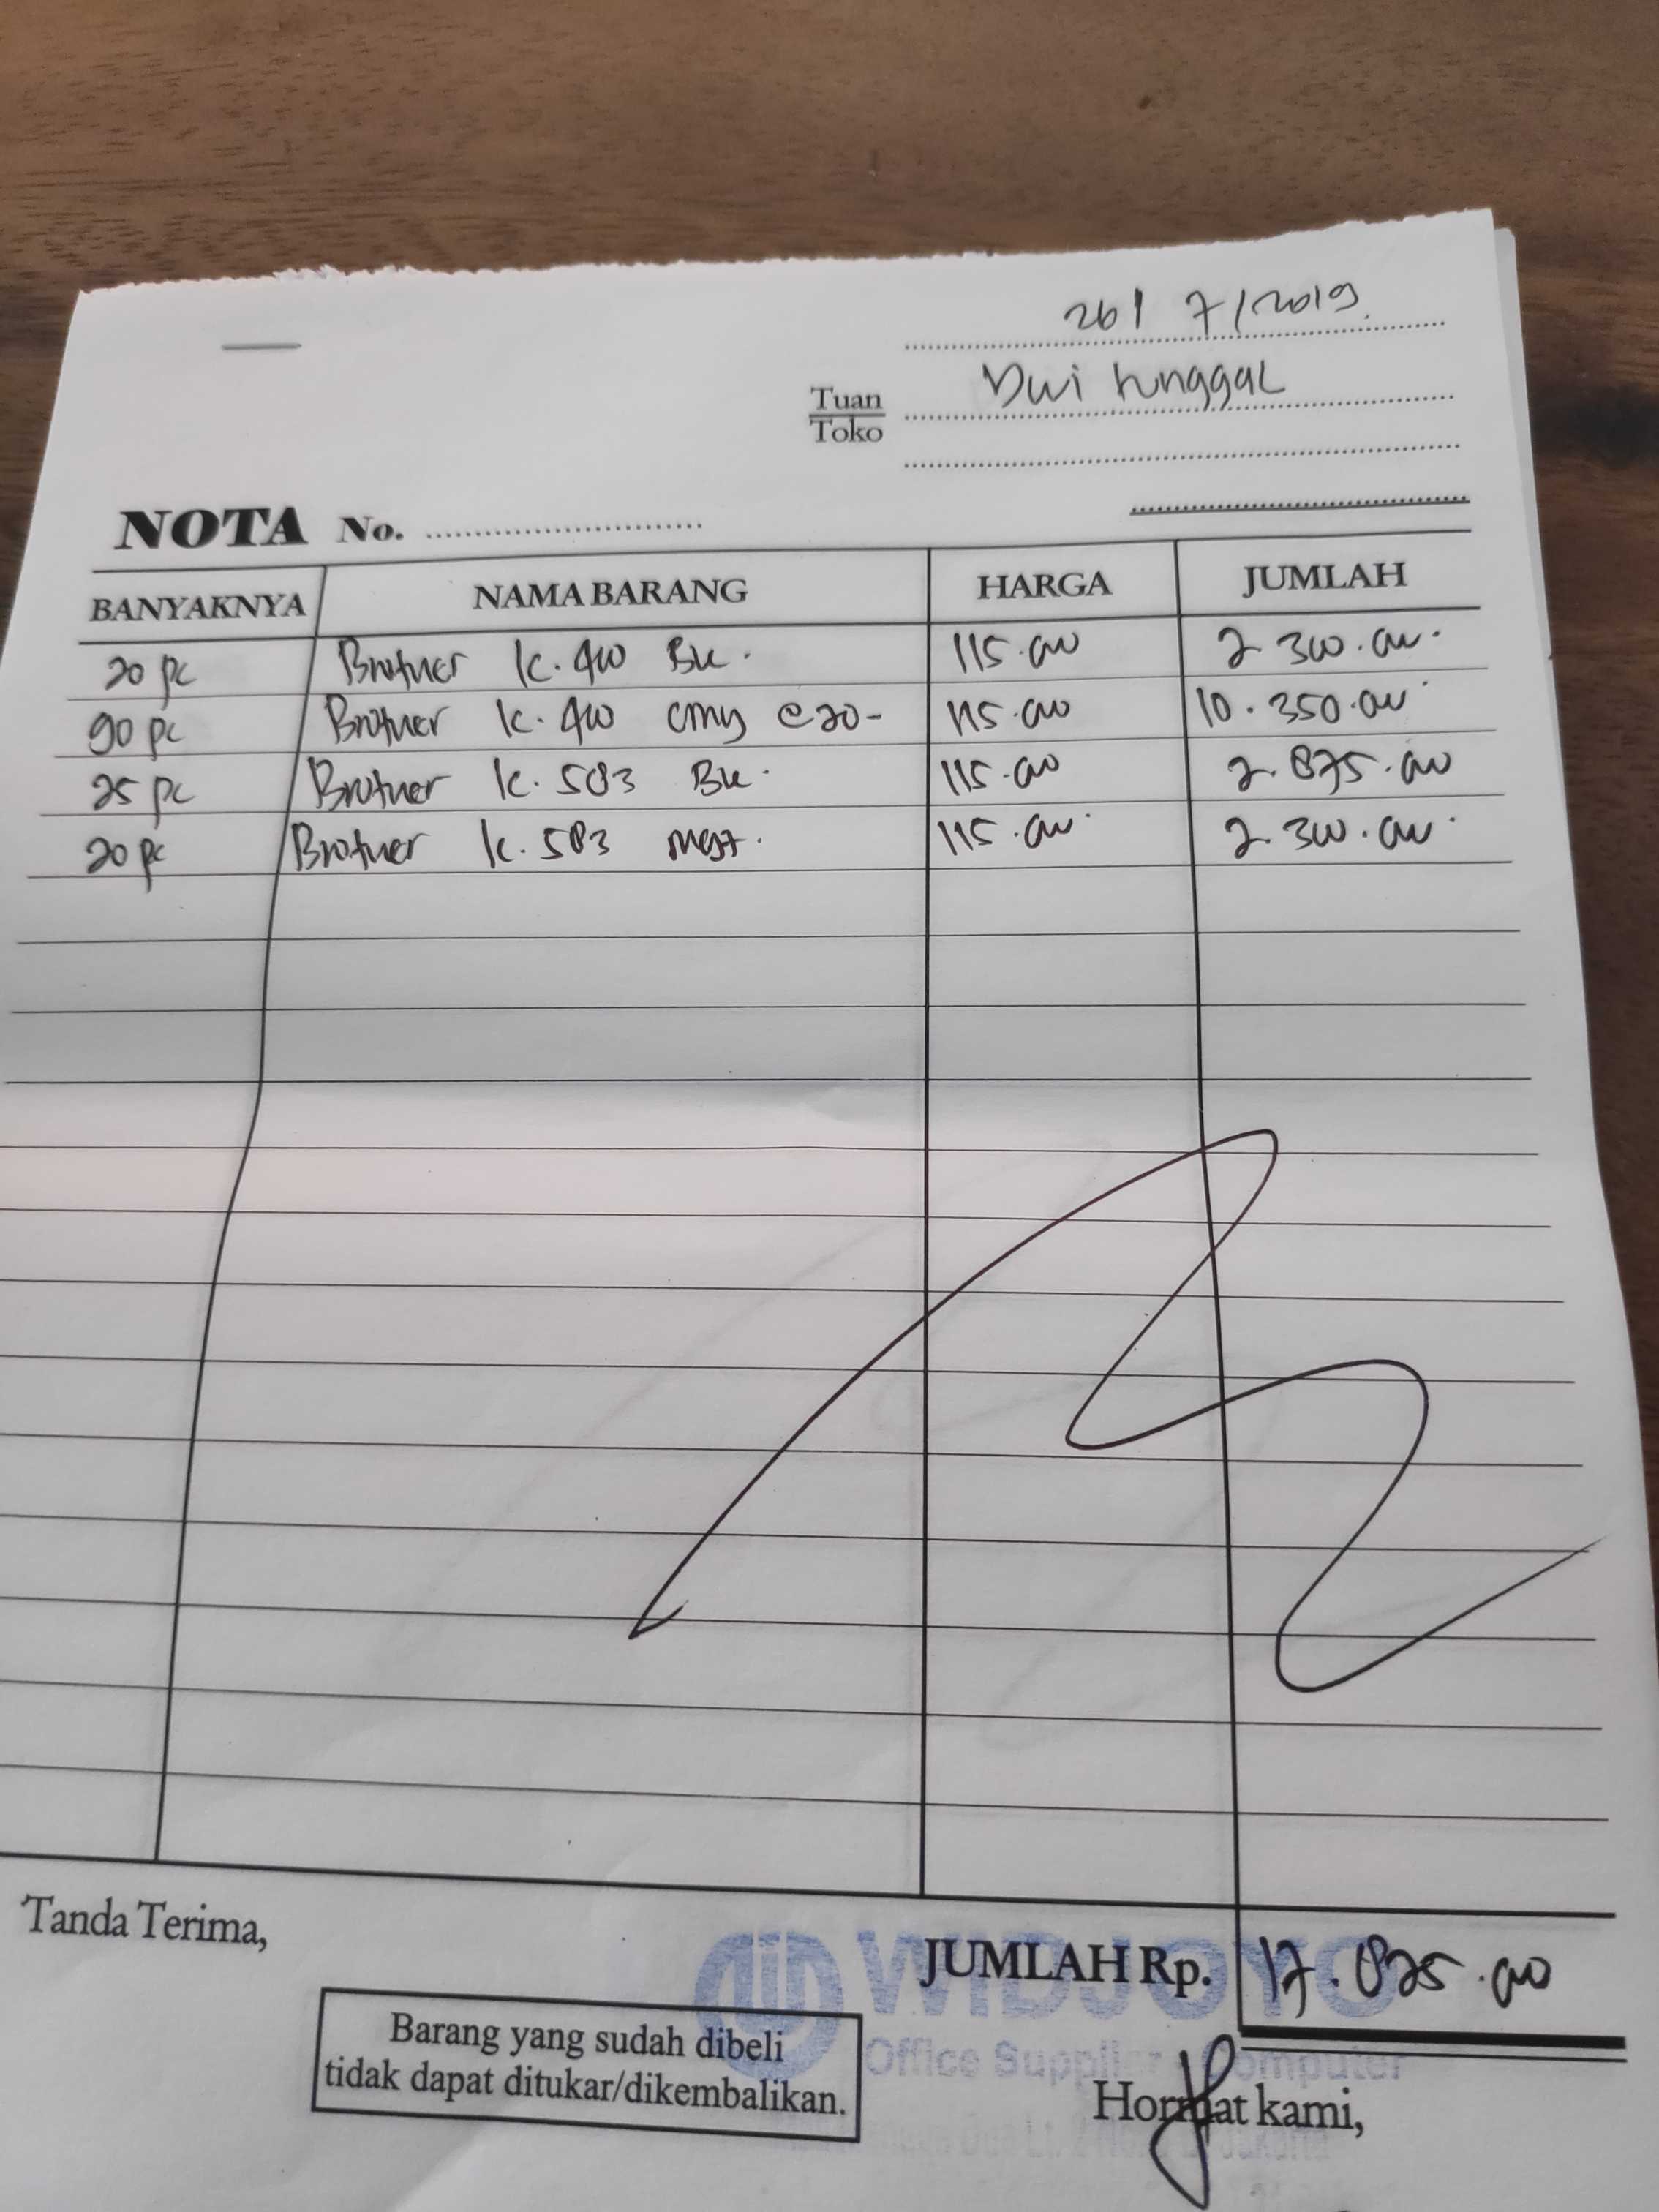 26/ 7/2019.
Tuan Dwi tunggal
Toko
NOTA No.
BANYAKNYA NAMA BARANG HARGA JUMLAH
20 pc Brother k. 400 Bk. 115.000 2.300.000.
90 pc Brother k. 400 cmy @20- 115.000 10.350.000.
25 pc Brother k. 583 Bk. 115.000 2.875.000
20 pc Brother k. 583 mgt. 115.000. 2.300.000.
Tanda Terima,
JUMLAH Rp. 17.825.000
WIDJOYO
Barang yang sudah dibeli
tidak dapat ditukar/dikembalikan.
Office Supplier Computer
Hormat kami,